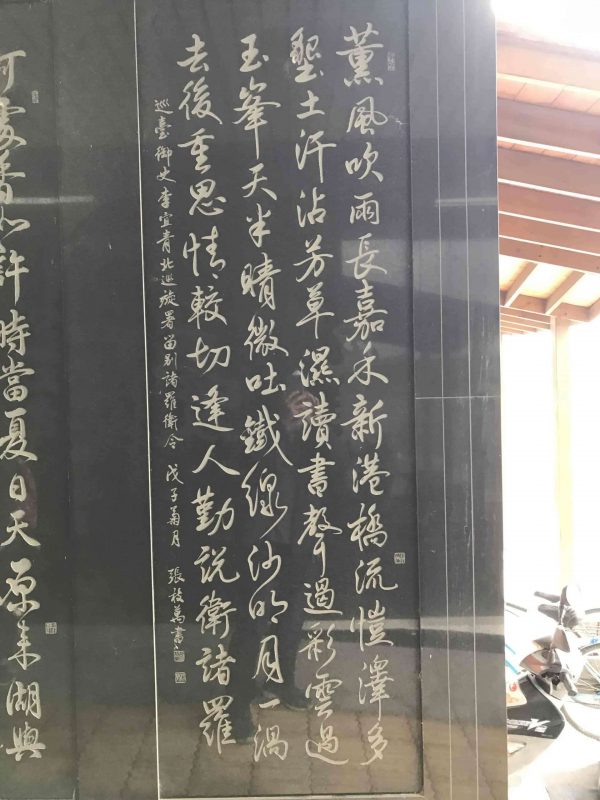 薰風吹雨長嘉禾新港橋流愷澤多
墾土汗沾芳草濕讀書聲遏彩雲過
玉峯天半晴微吐鐵線沙明月一渦
去後重思情較切逢人勤説衛諸羅
巡臺御史李宜青北巡旋署留别諸羅衛令 戊子菊月 張枝萬書
何處香如許時當夏日天原來湖與